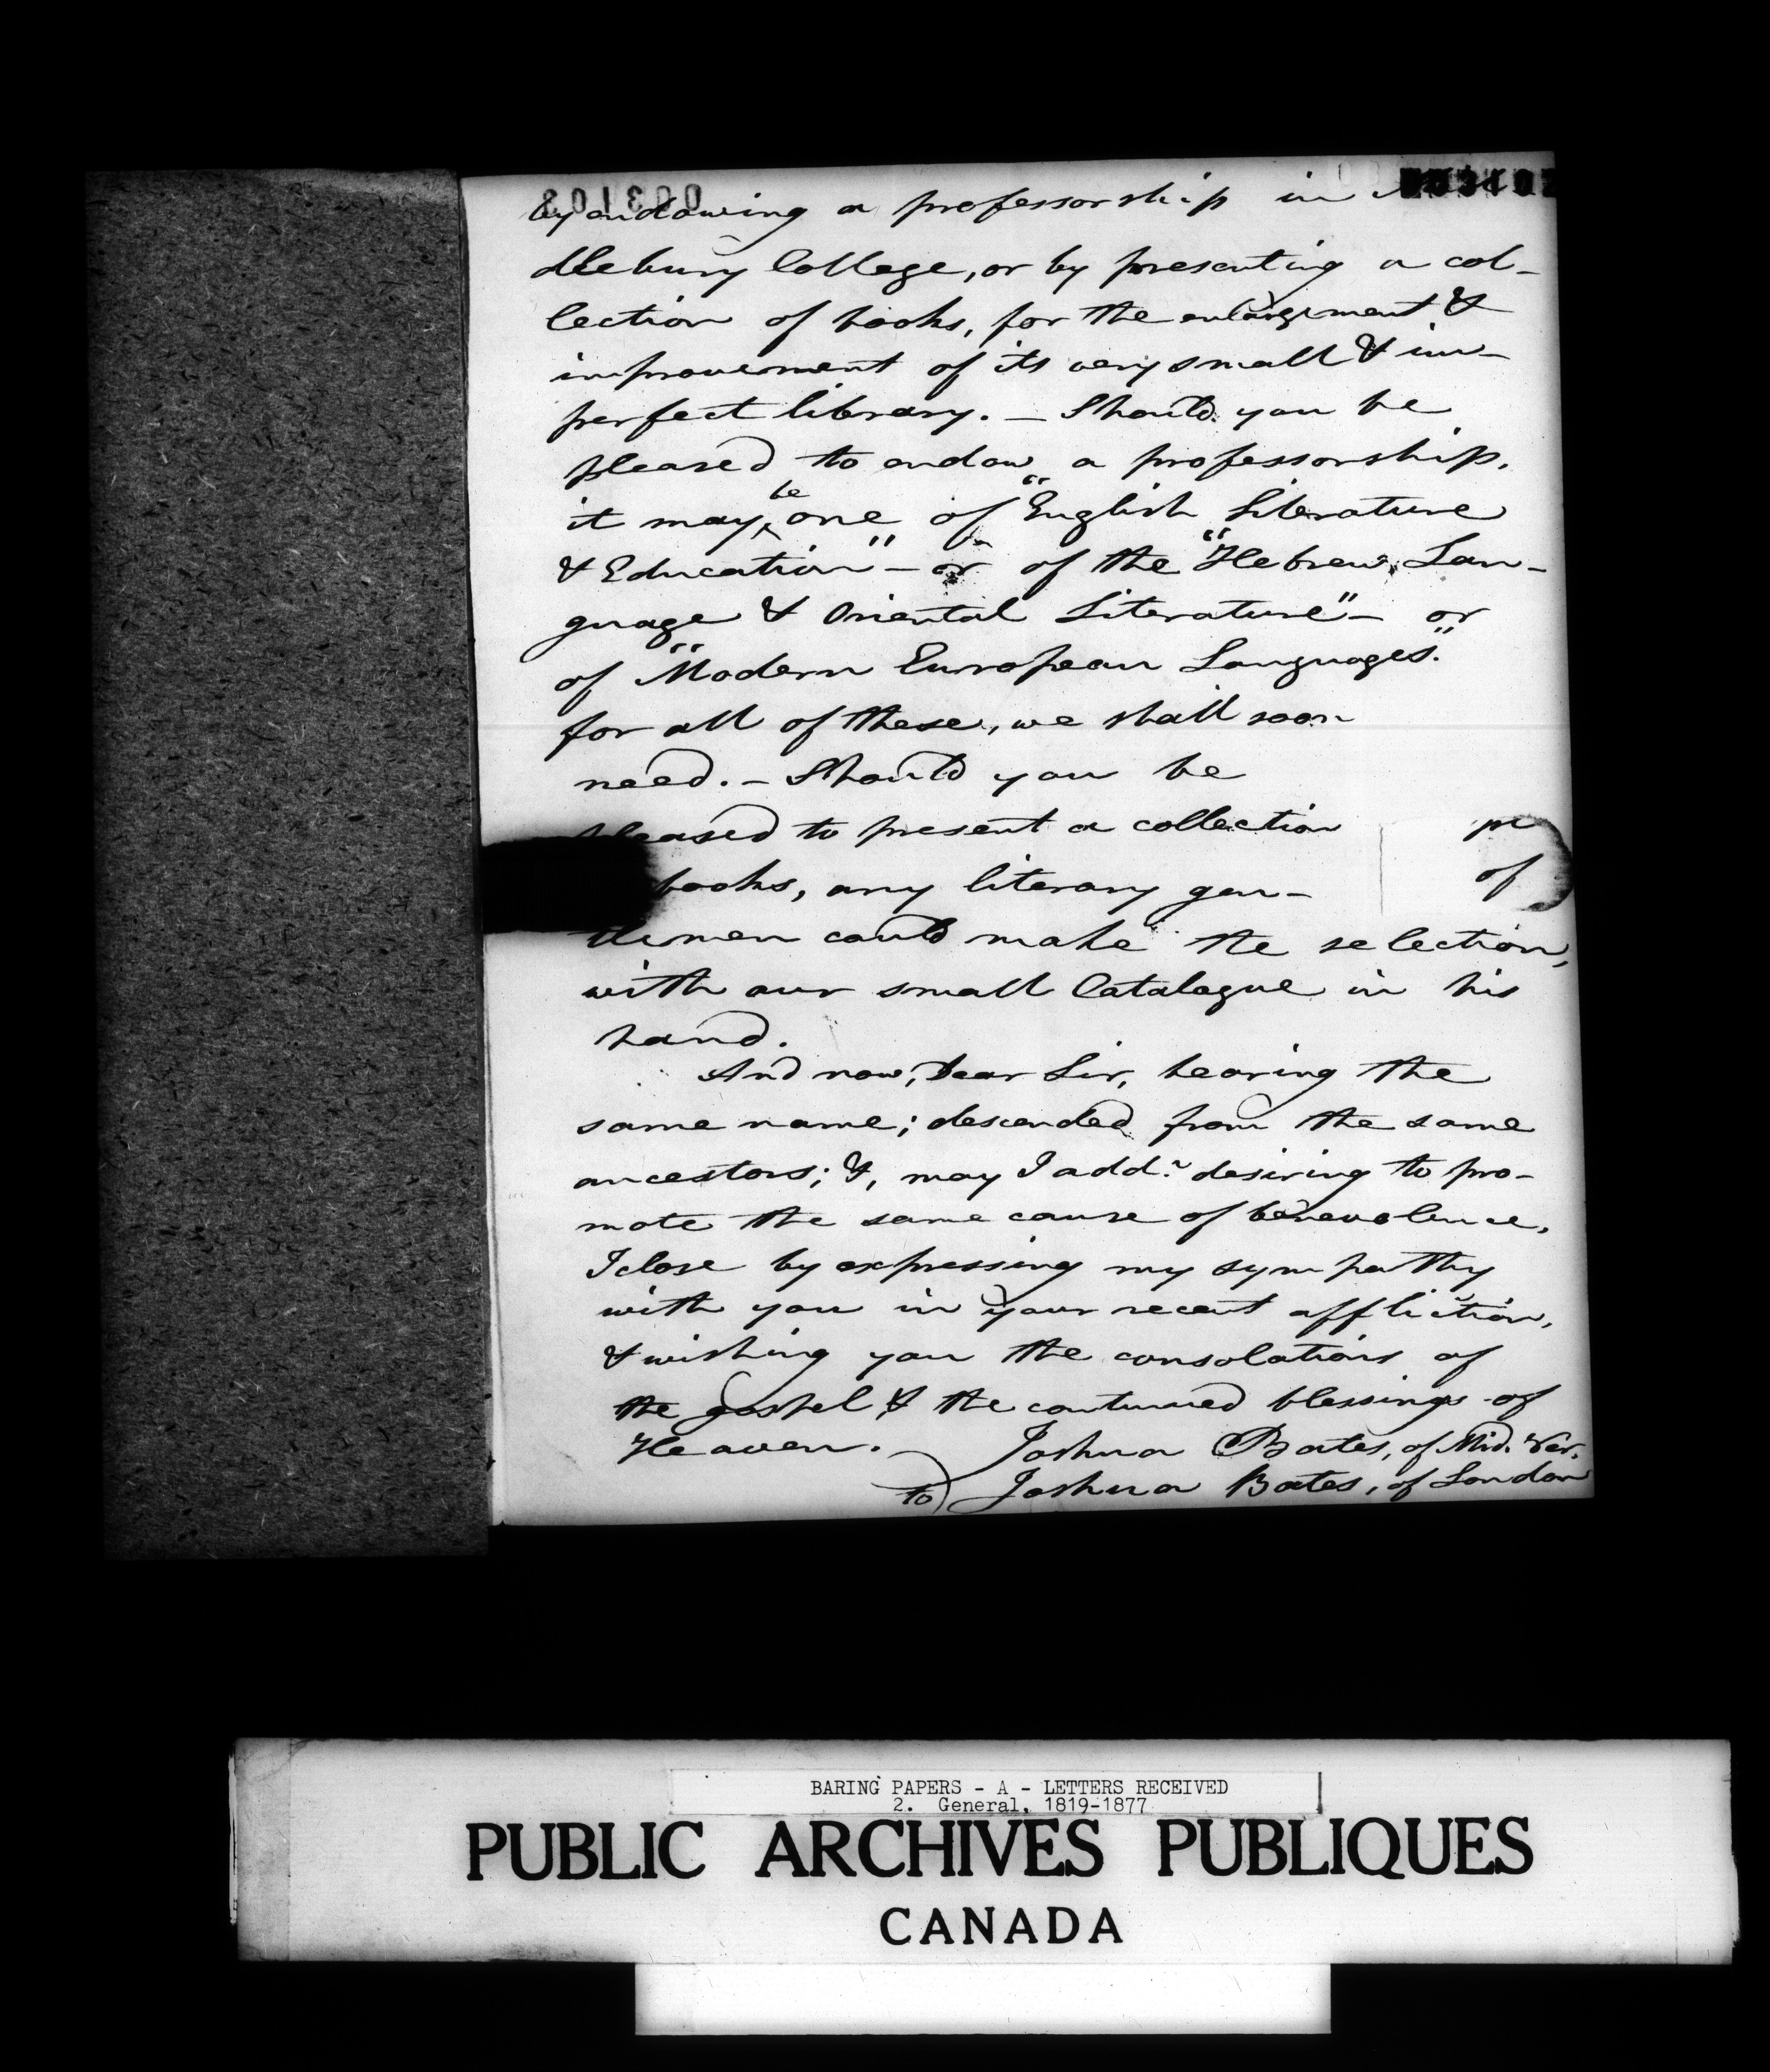 by endowing a professorship in
dlebury College, or by presenting a col-
lection of books, for the enlargement &
improvement of its very small & im-
perfect library. - Should you be
pleased to endow a professorship,
it may be one of "English Literature
& Education" - or of the "Hebrew Lan-
guage & Oriental Literature" - or
of "Modern European Languages."
for all of these, we shall soon
need. - Should you be
pleased to present a collection
pl
books, any literary gen-
of
tlemen could make the selection,
with our small Catalogue in his
hand.
And now, Dear Sir, bearing the
same name; descended from the same
ancestors; &, may I add? desiring to pro-
mote the same cause of benevolence,
I close by expressing my sympathy
with you in your recent affliction,
& wishing you the consolations of
the gospel & the continued blessings of
Heaven.
Joshua Bates, of Mid. Ver.
to Joshua Bates, of London
BARING PAPERS - A - LETTERS RECEIVED
2. General, 1819-1877
PUBLIC ARCHIVES PUBLIQUES
CANADA